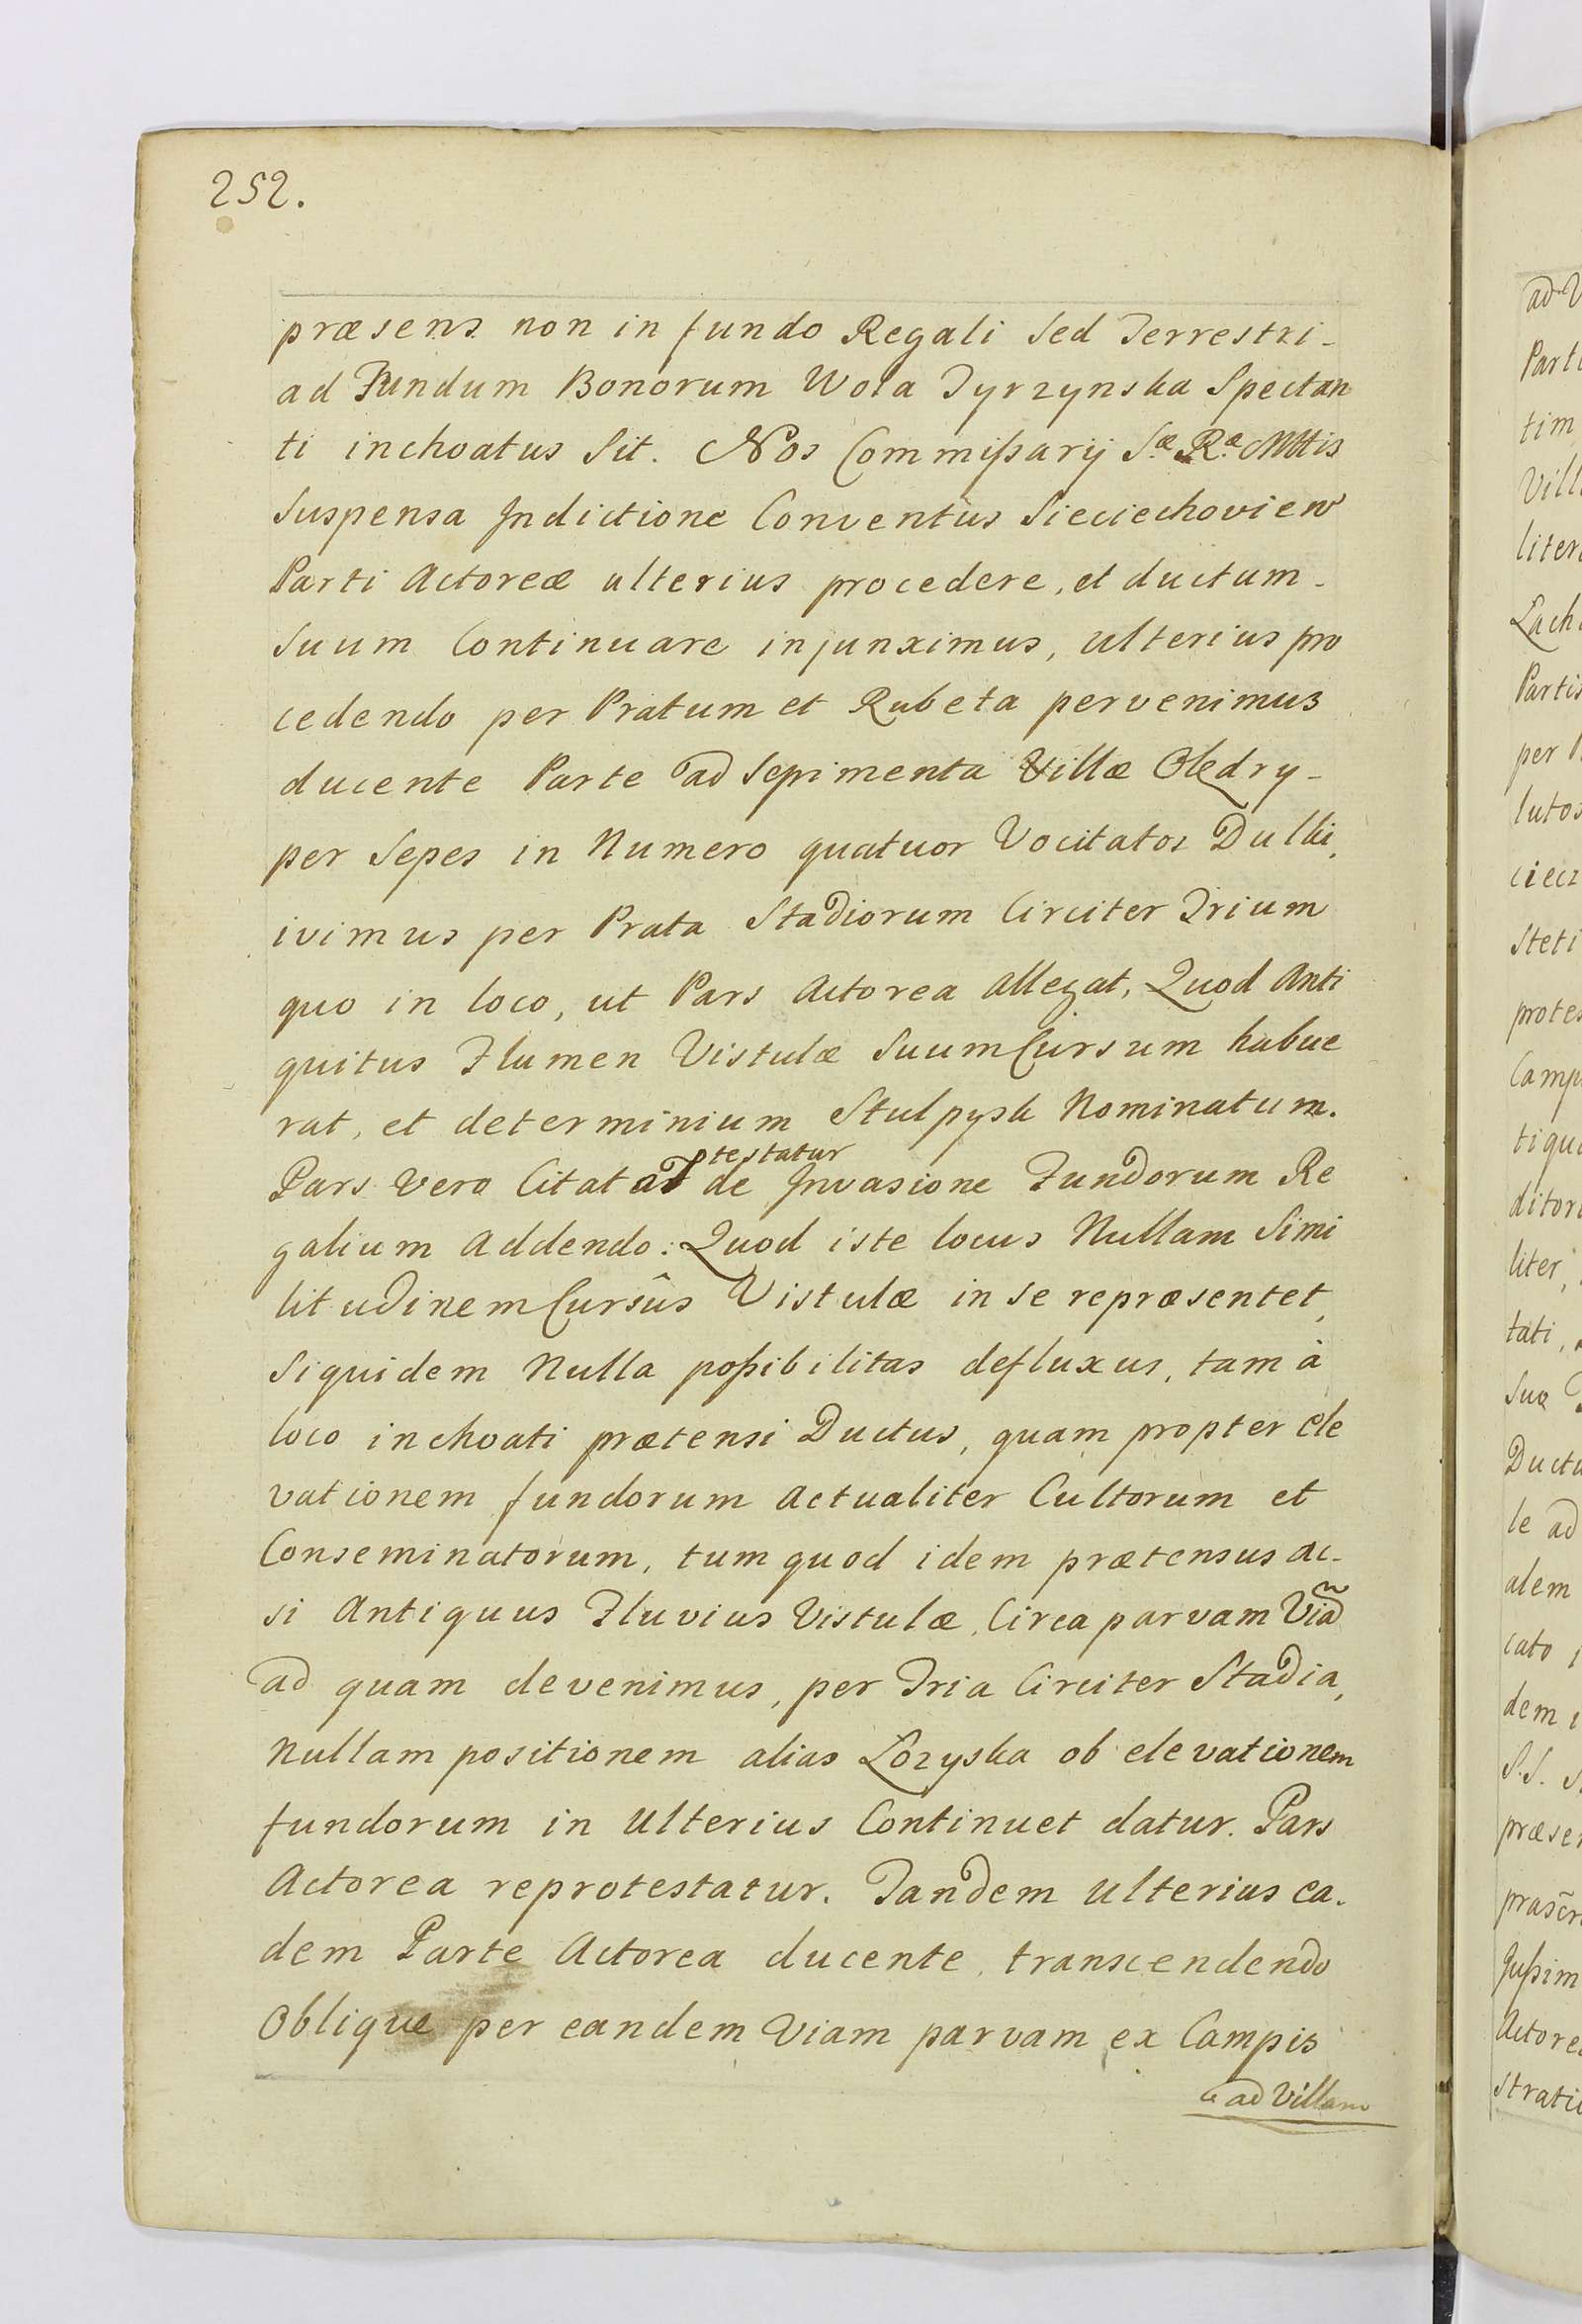 252.
præsens non in fundo Regali sed Terrestri-
ad Fundum Bonorum Wola Tyrzynska Spectan
ti inchoatus sit. Nos Commißarij Sæ Ræ Mttis
suspensa Indictione Conventus Sieciechoview
Parti Actoreæ ulterius procedere, et ductum-
suum Continuare injunximus, ulterius pro
cedendo per Pratum et Rubeta pervenimus
ducente Parte ad Sepimenta Villæ Olędry-
per Sepes in Numero quatuor Vocitatos Dulki,
ivimus per Prata Stadiorum Circiter Trium
quo in loco, ut Pars Actorea allegat, Quod Anti
quitus Flumen Vistulæ suum Cursum habue
rat, et determinium Stulpysk Nominatum.
testatur
Pars vero Citata de Invasione Fundorum Re
galium Addendo: Quod iste locus Nullam Simi
litudinem Cursûs Vistulæ in se repræsentet,
siquidem Nulla poßibilitas defluxus, tam à
loco inchoati prætensi Ductus, quam propter ele
vationem fundorum actualiter Cultorum et
Conseminatorum, tum quod idem prætensus ac-
si Antiquus Fluvius Vistulæ, Circa parvam Viã
ad quam devenimus, per Tria Circiter Stadia,
Nullam positionem alias Łozyska ob elevationem
fundorum in Ulterius Continuet datur. Pars
Actorea reprotestatur. Tandem ulterius ea-
dem Parte Actorea ducente, transcendendo
Oblique per eandem Viam parvam ex Campis
ad Villam